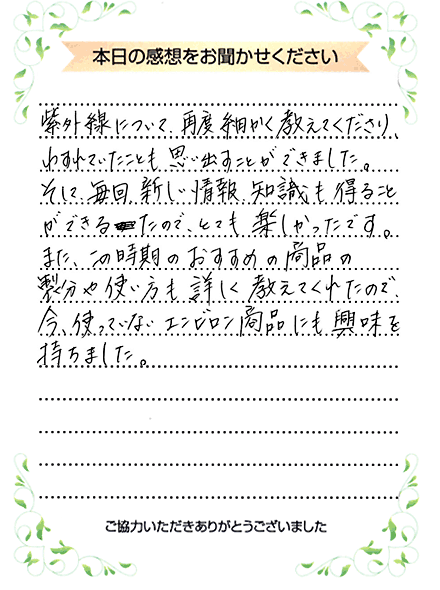 本日の感想をお聞かせください
紫外線について、再度細かく教えてくださり、
わすれていたことも思い出すことができました。
そして、毎回、新しい情報、知識も得ること
ができるたので、とても楽しかったです。
また、この時期のおすすめの商品の
製分や使い方も、詳しく教えてくれたので、
今、使っていないエンビロン商品にも興味を
持ちました。
ご協力いただきありがとうございました